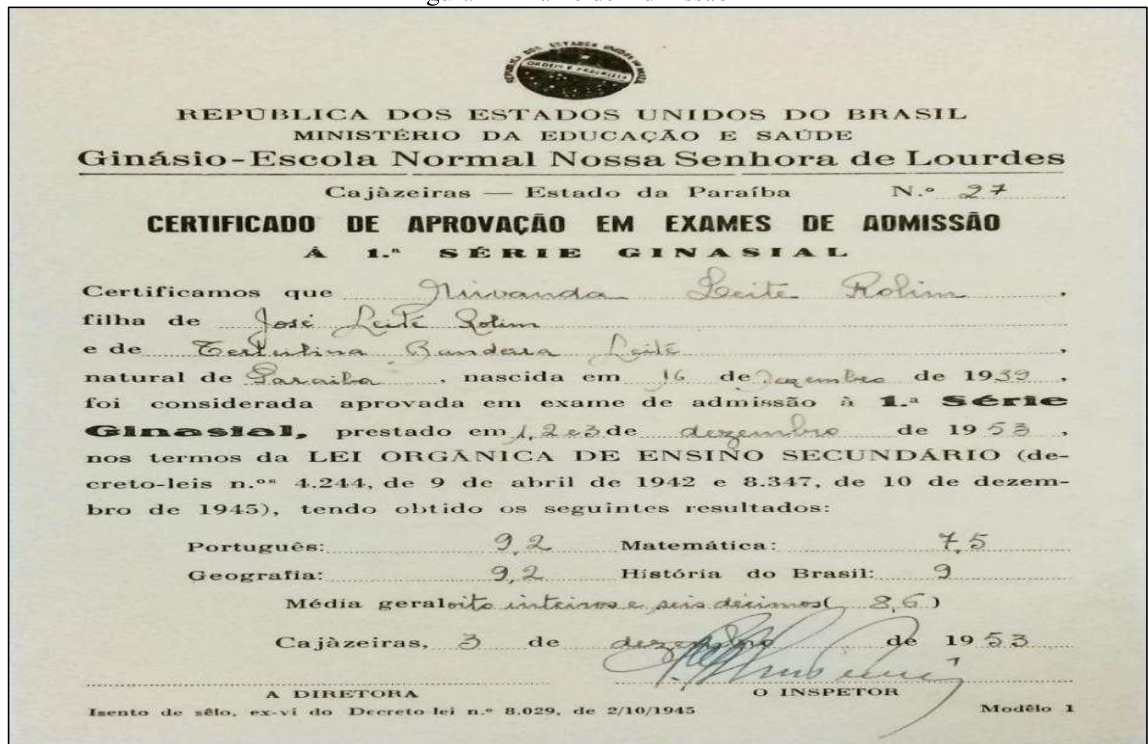 REPÚBLICA DOS ESTADOS UNIDOS DO BRASIL
ORDEM E PROGRESSO
REPÚBLICA DOS ESTADOS UNIDOS DO BRASIL
MINISTÉRIO DA EDUCAÇÃO E SAÚDE
Ginásio-Escola Normal Nossa Senhora de Lourdes
Cajàzeiras — Estado da Paraíba N.º 27
CERTIFICADO DE APROVAÇÃO EM EXAMES DE ADMISSÃO
À 1.ª SÉRIE GINASIAL
Certificamos que Nivanda Leite Rolim,
filha de José Leite Rolim
e de Bandeira Leite,
natural de Paraiba, nascida em 16 de dezembro de 1939,
foi considerada aprovada em exame de admissão à 1.ª Série
Ginasial, prestado em 1, 2 e 3 de dezembro de 1953,
nos termos da LEI ORGÂNICA DE ENSINO SECUNDÁRIO (de-
creto-leis n.ºs 4.244, de 9 de abril de 1942 e 8.347, de 10 de dezem-
bro de 1945), tendo obtido os seguintes resultados:
Português: 9,2 Matemática: 7,5
Geografia: 9,2 História do Brasil: 9
Média geral oito inteiros e seis décimos ( 8,6 )
Cajàzeiras, 3 de dezembro de 1953
A DIRETORA O INSPETOR
Isento de sêlo, ex-vi do Decreto-lei n.º 8.029, de 2/10/1945 Modêlo 1